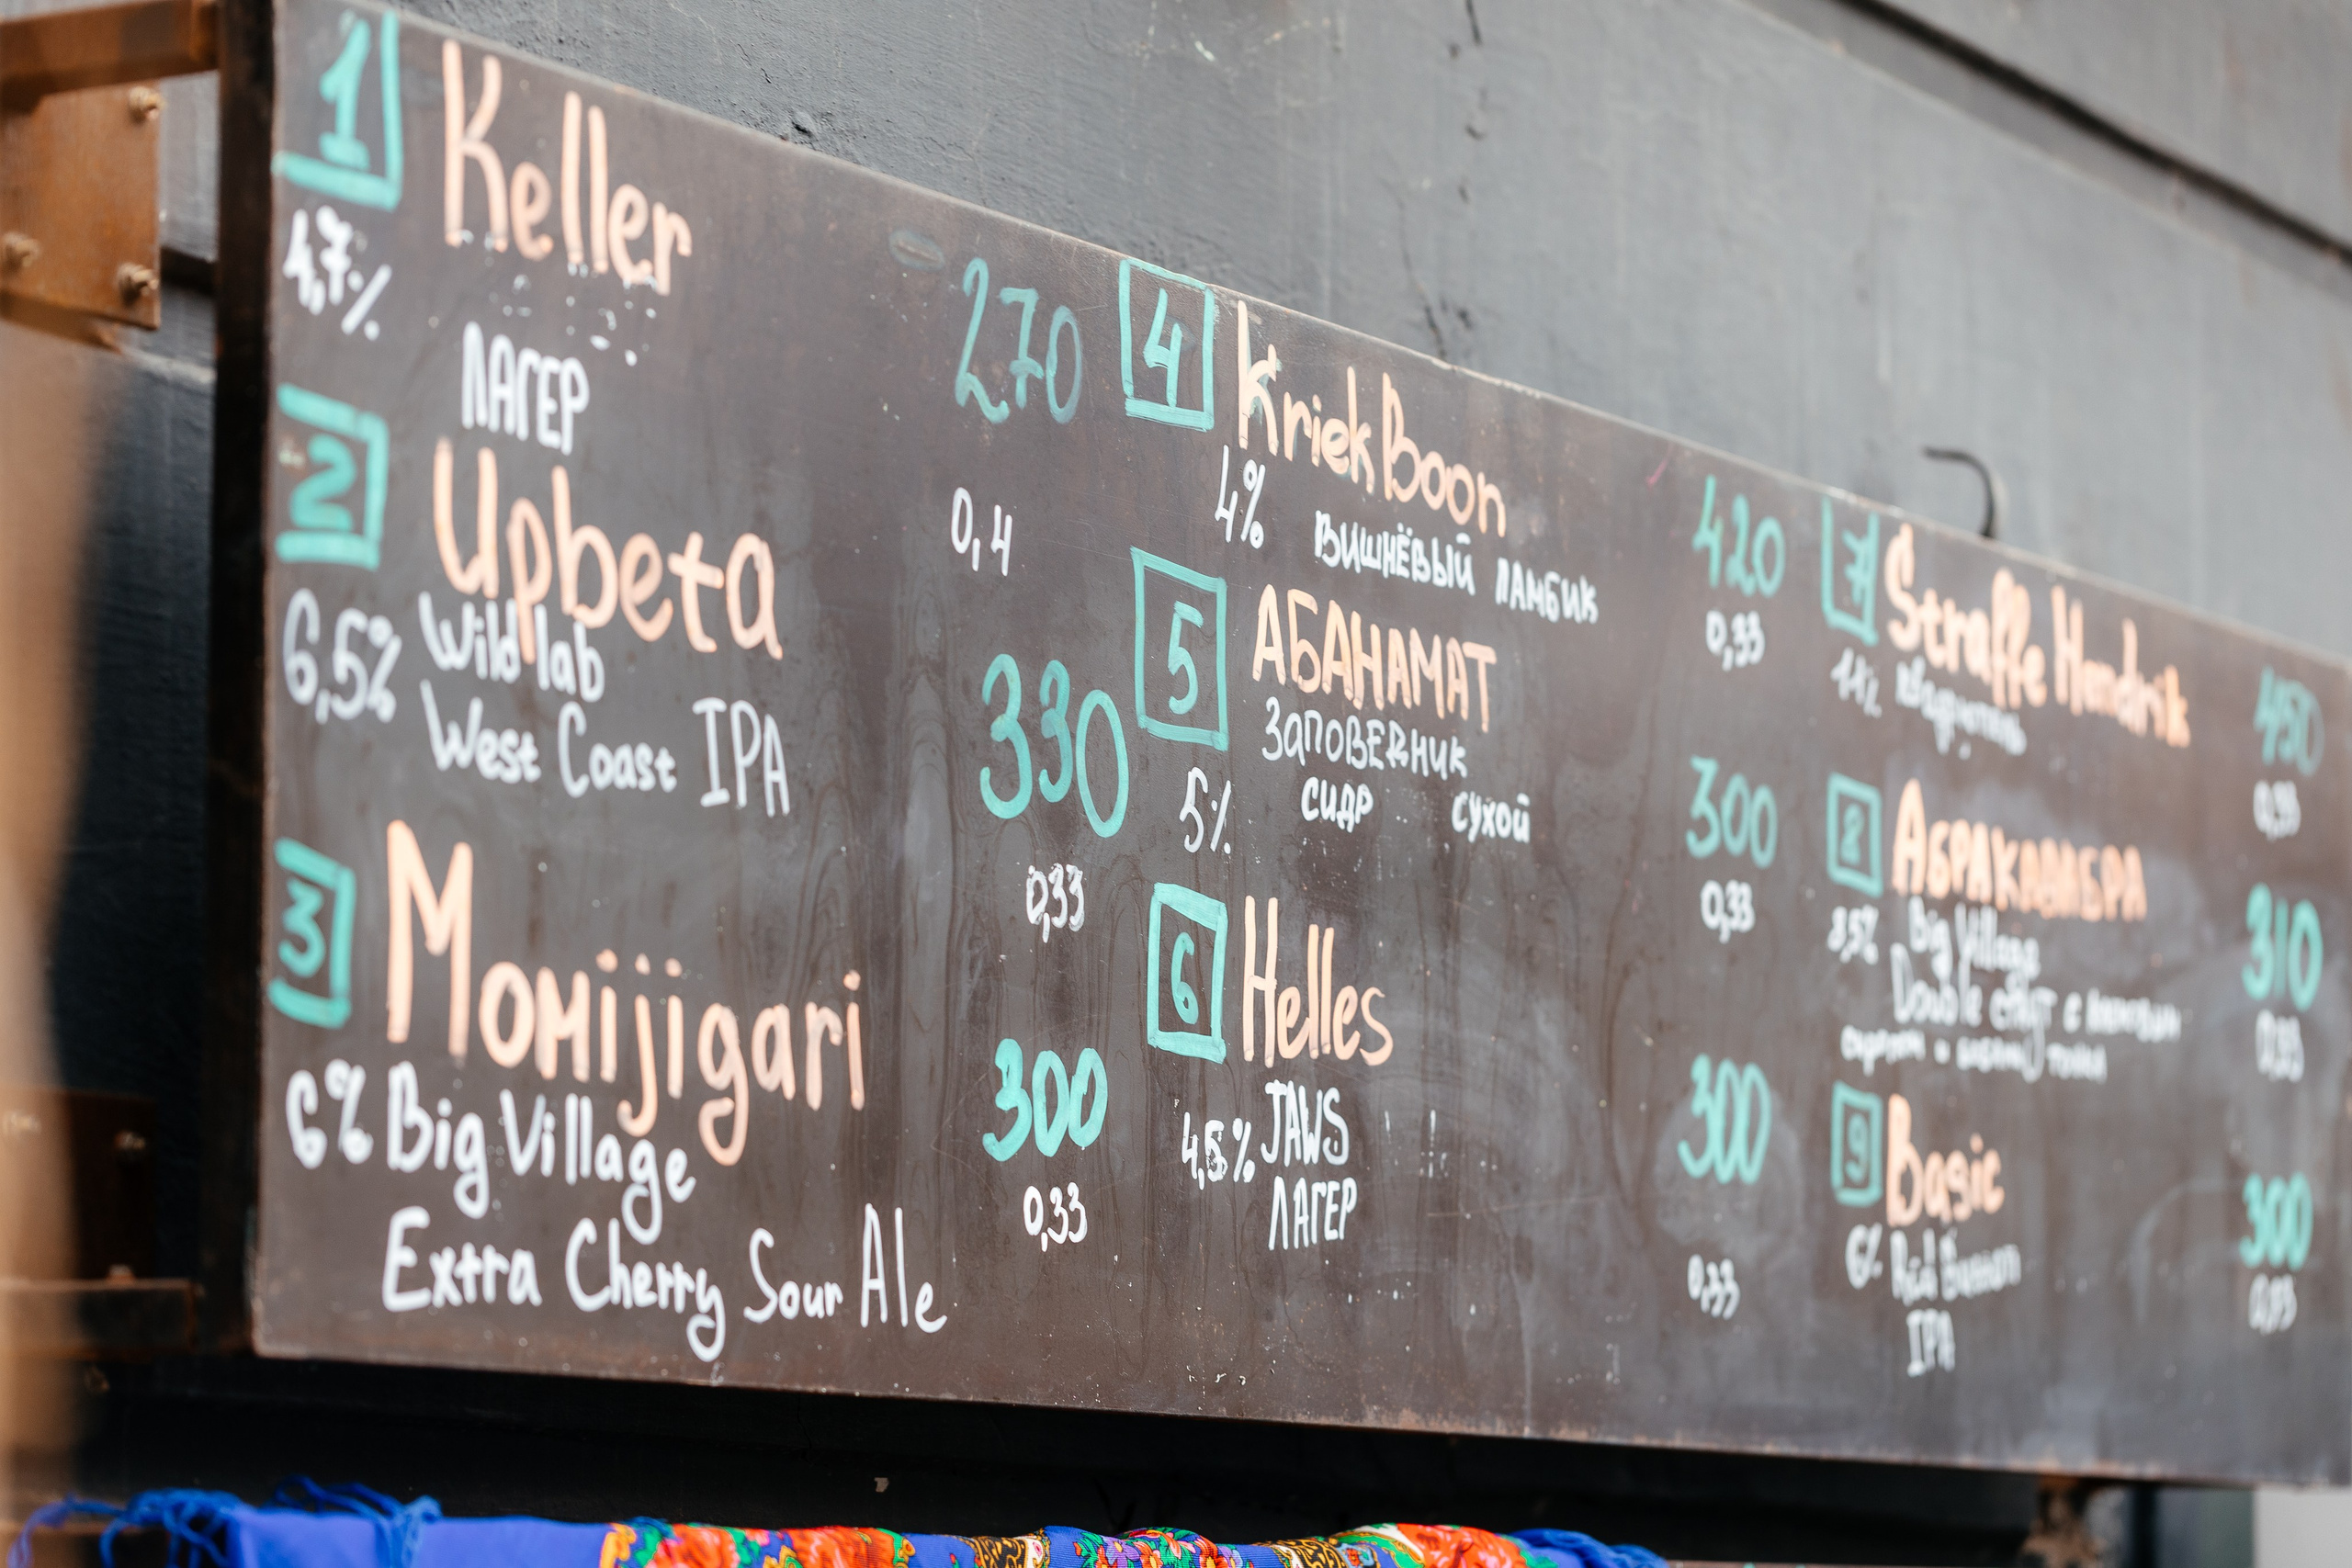 1 Keller
4,7%
ЛАГЕР
270
0,4
2 Upbeta
6,5% Wild lab
West Coast IPA
330
0,33
3 Momijigari
6% Big Village
Extra Cherry Sour Ale
300
0,33
4 Kriek Boon
4% ВИШНЁВЫЙ ЛАМБИК
420
0,33
5 АБАНАМАТ
ЗАПОВЕДНИК
5% СИДР СУХОЙ
300
0,33
6 Helles
4,5% JAWS
ЛАГЕР
300
0,33
7 Straffe Hendrik
11%
450
0,33
8 АБРАКАДАБРА
8,5% Big Village
Double стаут с
310
0,33
9 Basic
6% Red Button
IPA
300
0,33